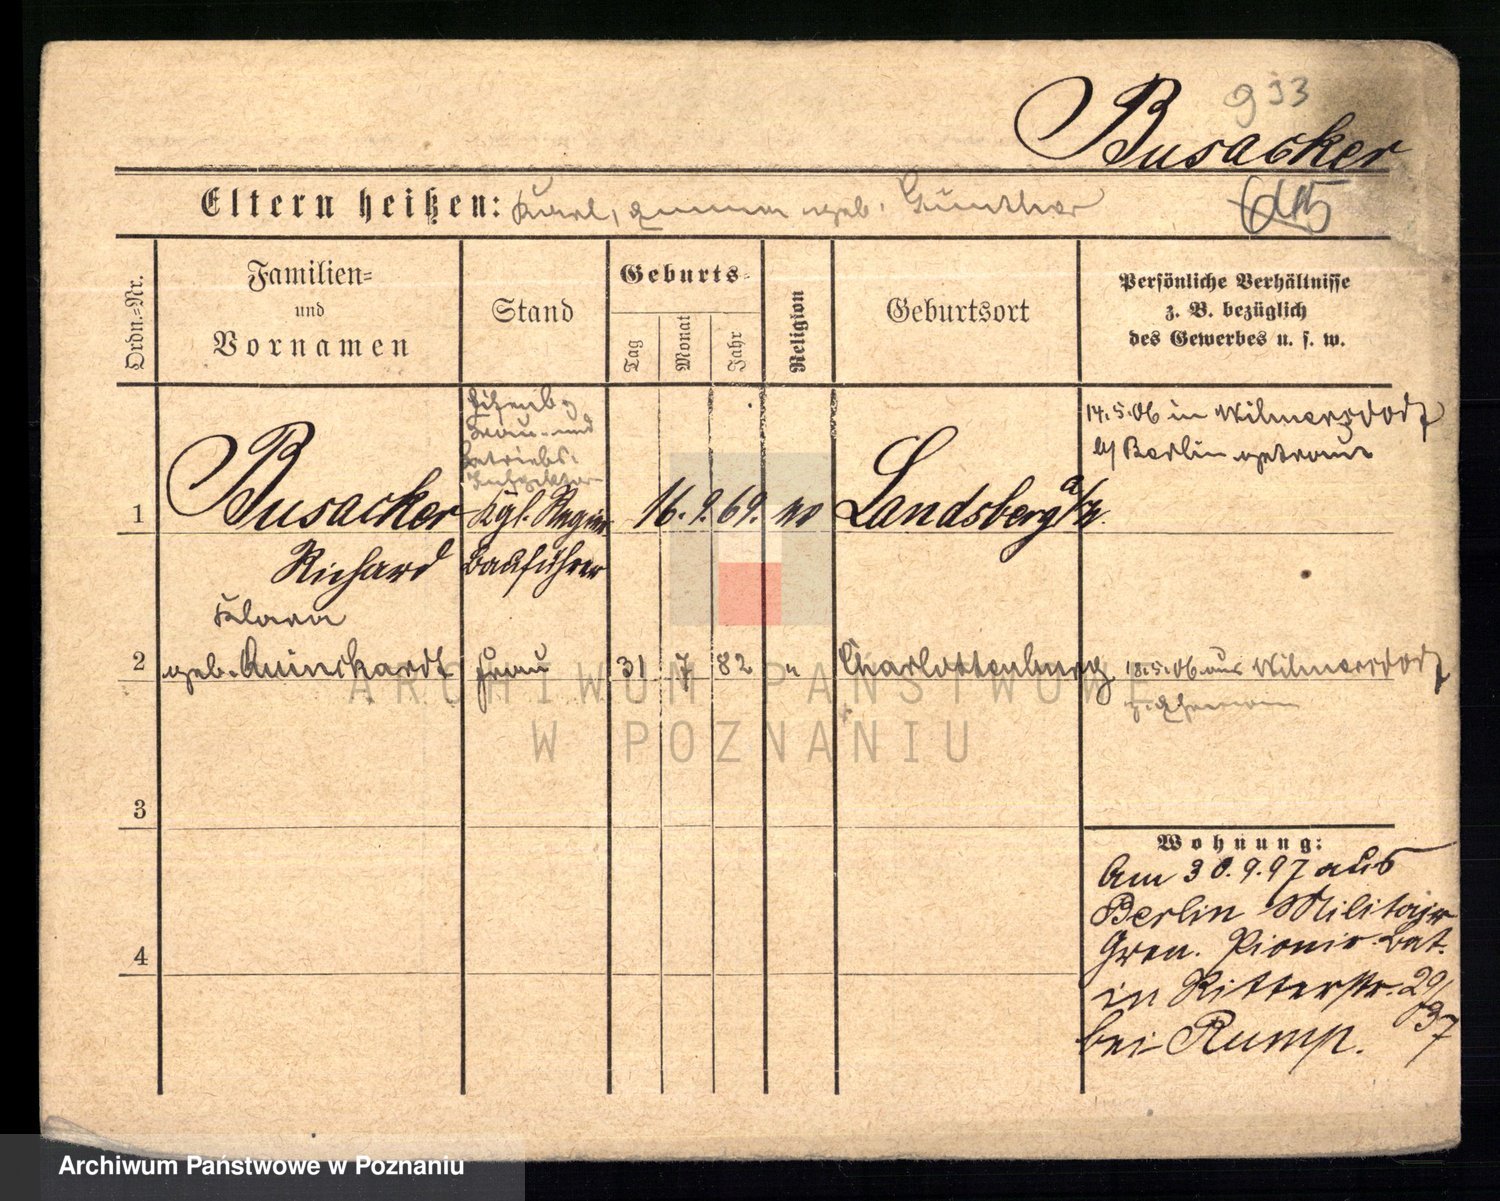 933
Busacker
Eltern heißen: Karl, Emma geb. Günther
615
Ordn.=Nr.
Familien=
und
Vornamen
Stand
Geburts=
Tag
Monat
Jahr
Religion
Geburtsort
Persönliche Verhältnisse
z. B. bezüglich
des Gewerbes u. s. w.
Eisenb.
Bau- und
Betriebs-
Inspektor
14.5.06 in Wilmersdorf
b/ Berlin getraut
1 Busacker Kgl. Regier. 16. 9. 69. Landsberg a/W.
Richard Bauführer
Klara
2 geb. Frau 31 7 82 " Charlottenburg 18.5.06 aus Wilmersdorf
3
4
Wohnung:
Am 30.9.97 aus
Berlin Militair
Pionir Bat.
in Ritterstr. 29/
37
bei Rump.
ARCHIWUM PAŃSTWOWE
W POZNANIU
Archiwum Państwowe w Poznaniu